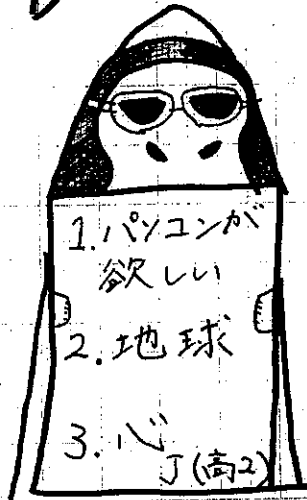 1.パソコンが
欲しい
2.地球
3.心
J(高2)